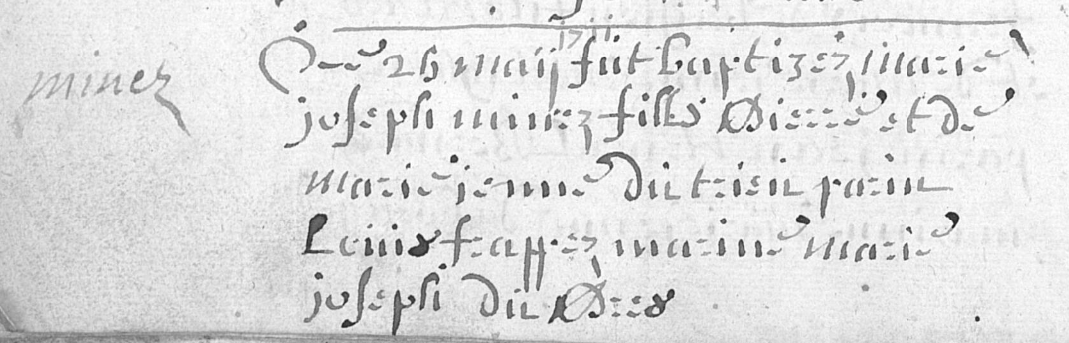 minez
Le 24 maij 1711 fut baptizez, marie
joseph minez fille Pierre et de
marie jenne du trieu parin
Louis frappez marine marie
joseph du Prez